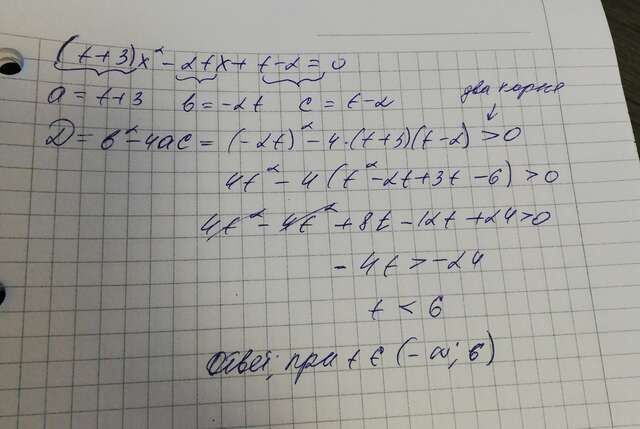 (t+3)x² - 2tx + t-2 = 0
a = t+3 b = -2t c = t-2 два корня
D = b²-4ac = (-2t)² - 4·(t+3)(t-2) > 0
4t² - 4(t²-2t+3t-6) > 0
4t² - 4t² + 8t - 12t + 24 > 0
- 4t > -24
t < 6
Ответ; при t ∈ (-∞; 6)